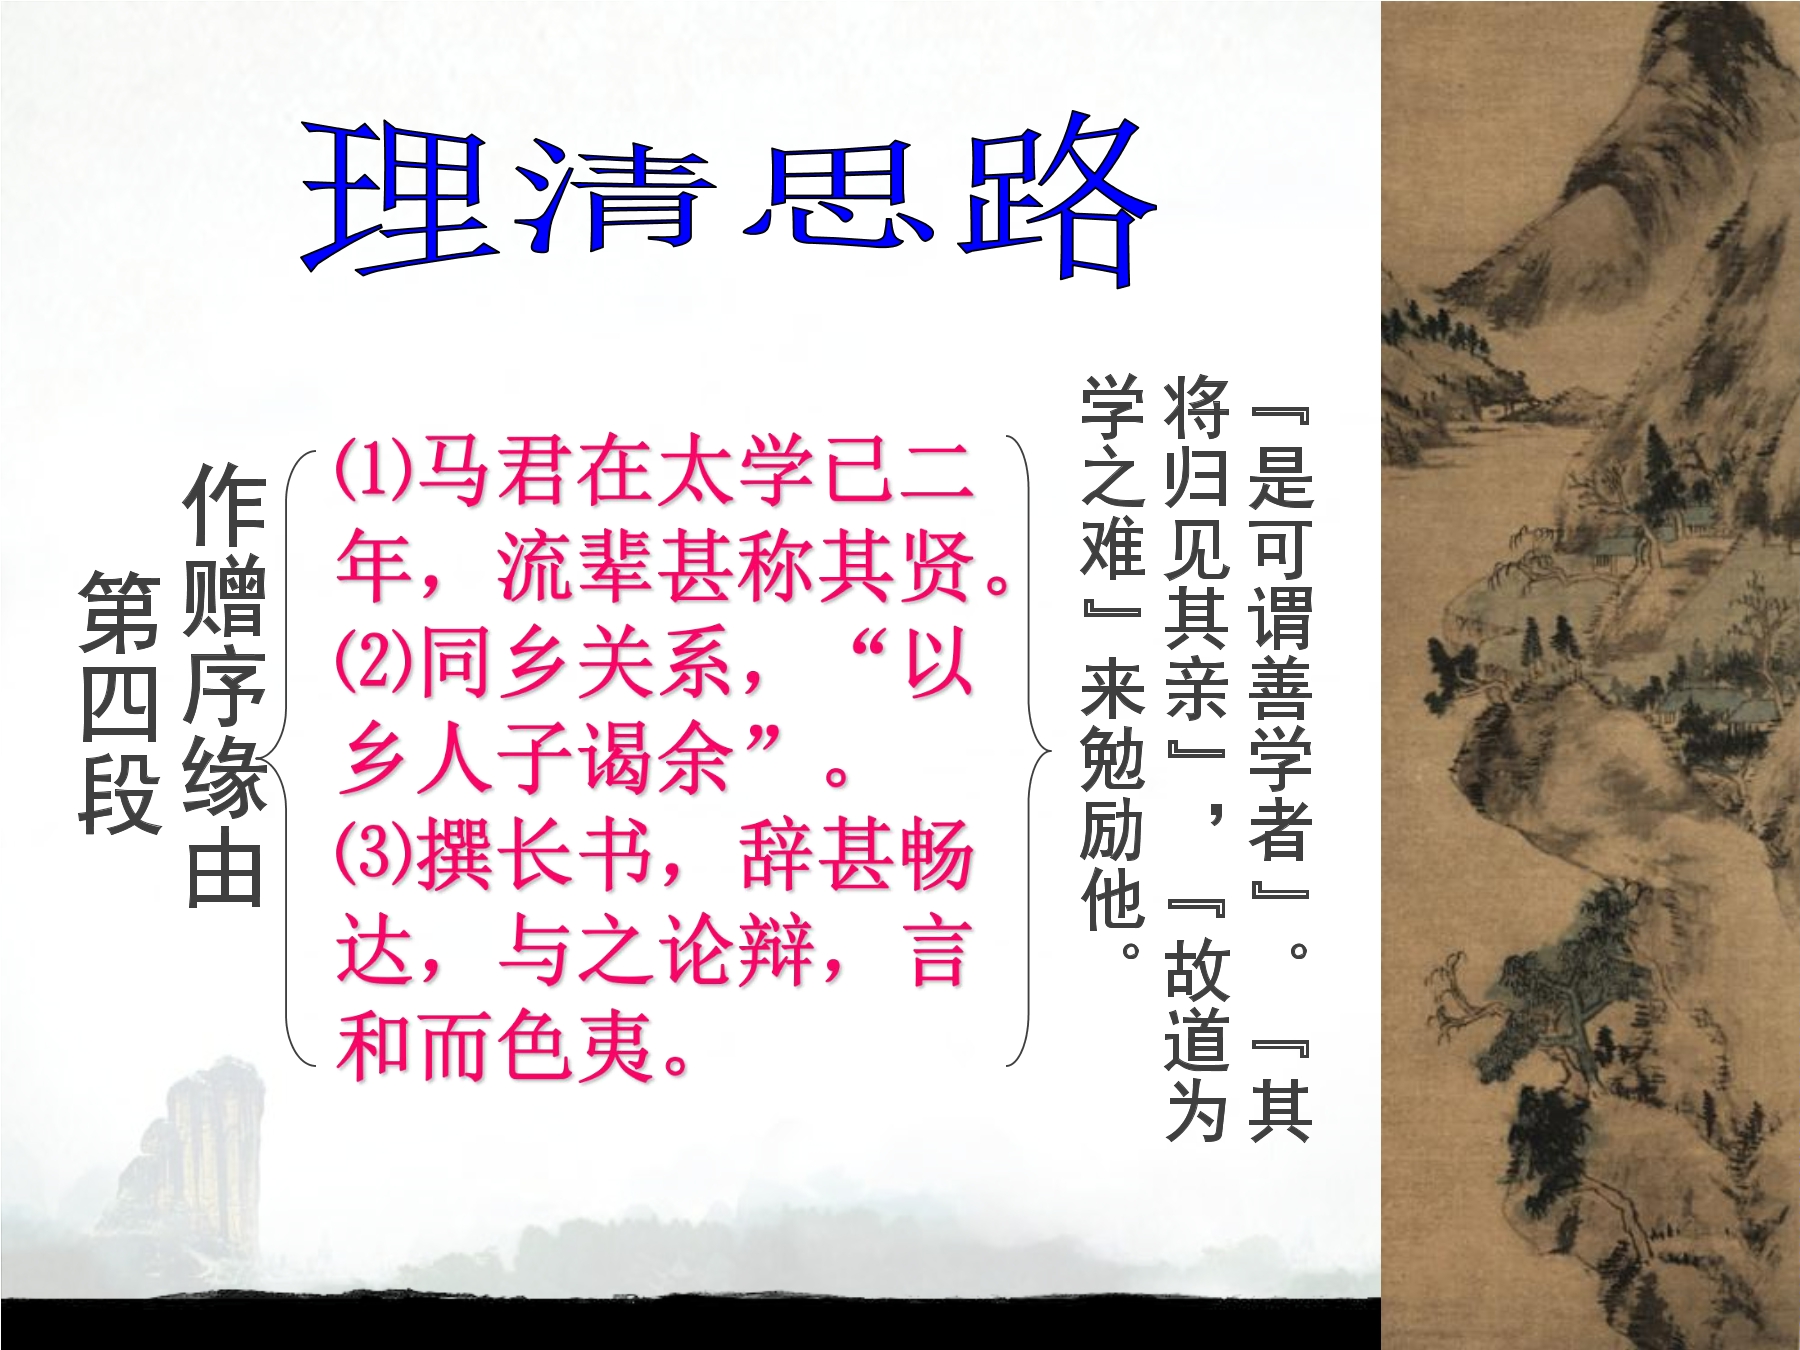 理清思路
第四段
作赠序缘由
⑴马君在太学已二
年，流辈甚称其贤。
⑵同乡关系，“以
乡人子谒余”。
⑶撰长书，辞甚畅
达，与之论辩，言
和而色夷。
『是可谓善学者』。『其
将归见其亲』，『故道为
学之难』来勉励他。